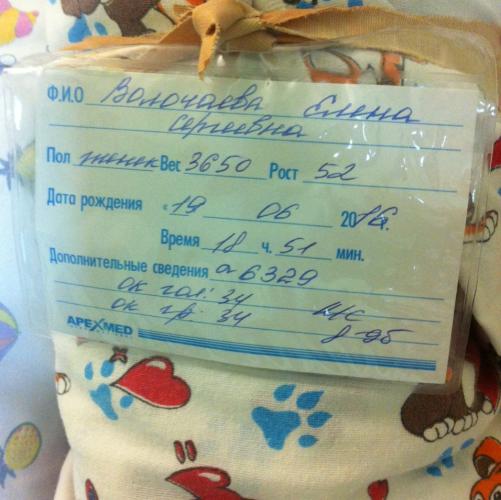 Ф.И.О Волочаева Елена
Сергеевна
Пол женск Вес 3650 Рост 52
Дата рождения «19 06 2016г.
Время 18 ч. 51 мин.
Дополнительные сведения а 6329
ок гол: 34
ок гр: 34 8-9б
APEXMED